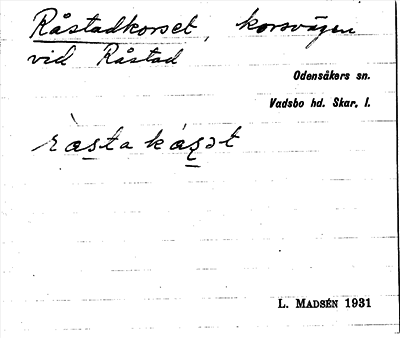 Råstadkorset, korsvägen
vid Råstad
Odensåkers sn.
Vadsbo hd. Skar. l.
ràsta kásət
L. MADSÉN 1931